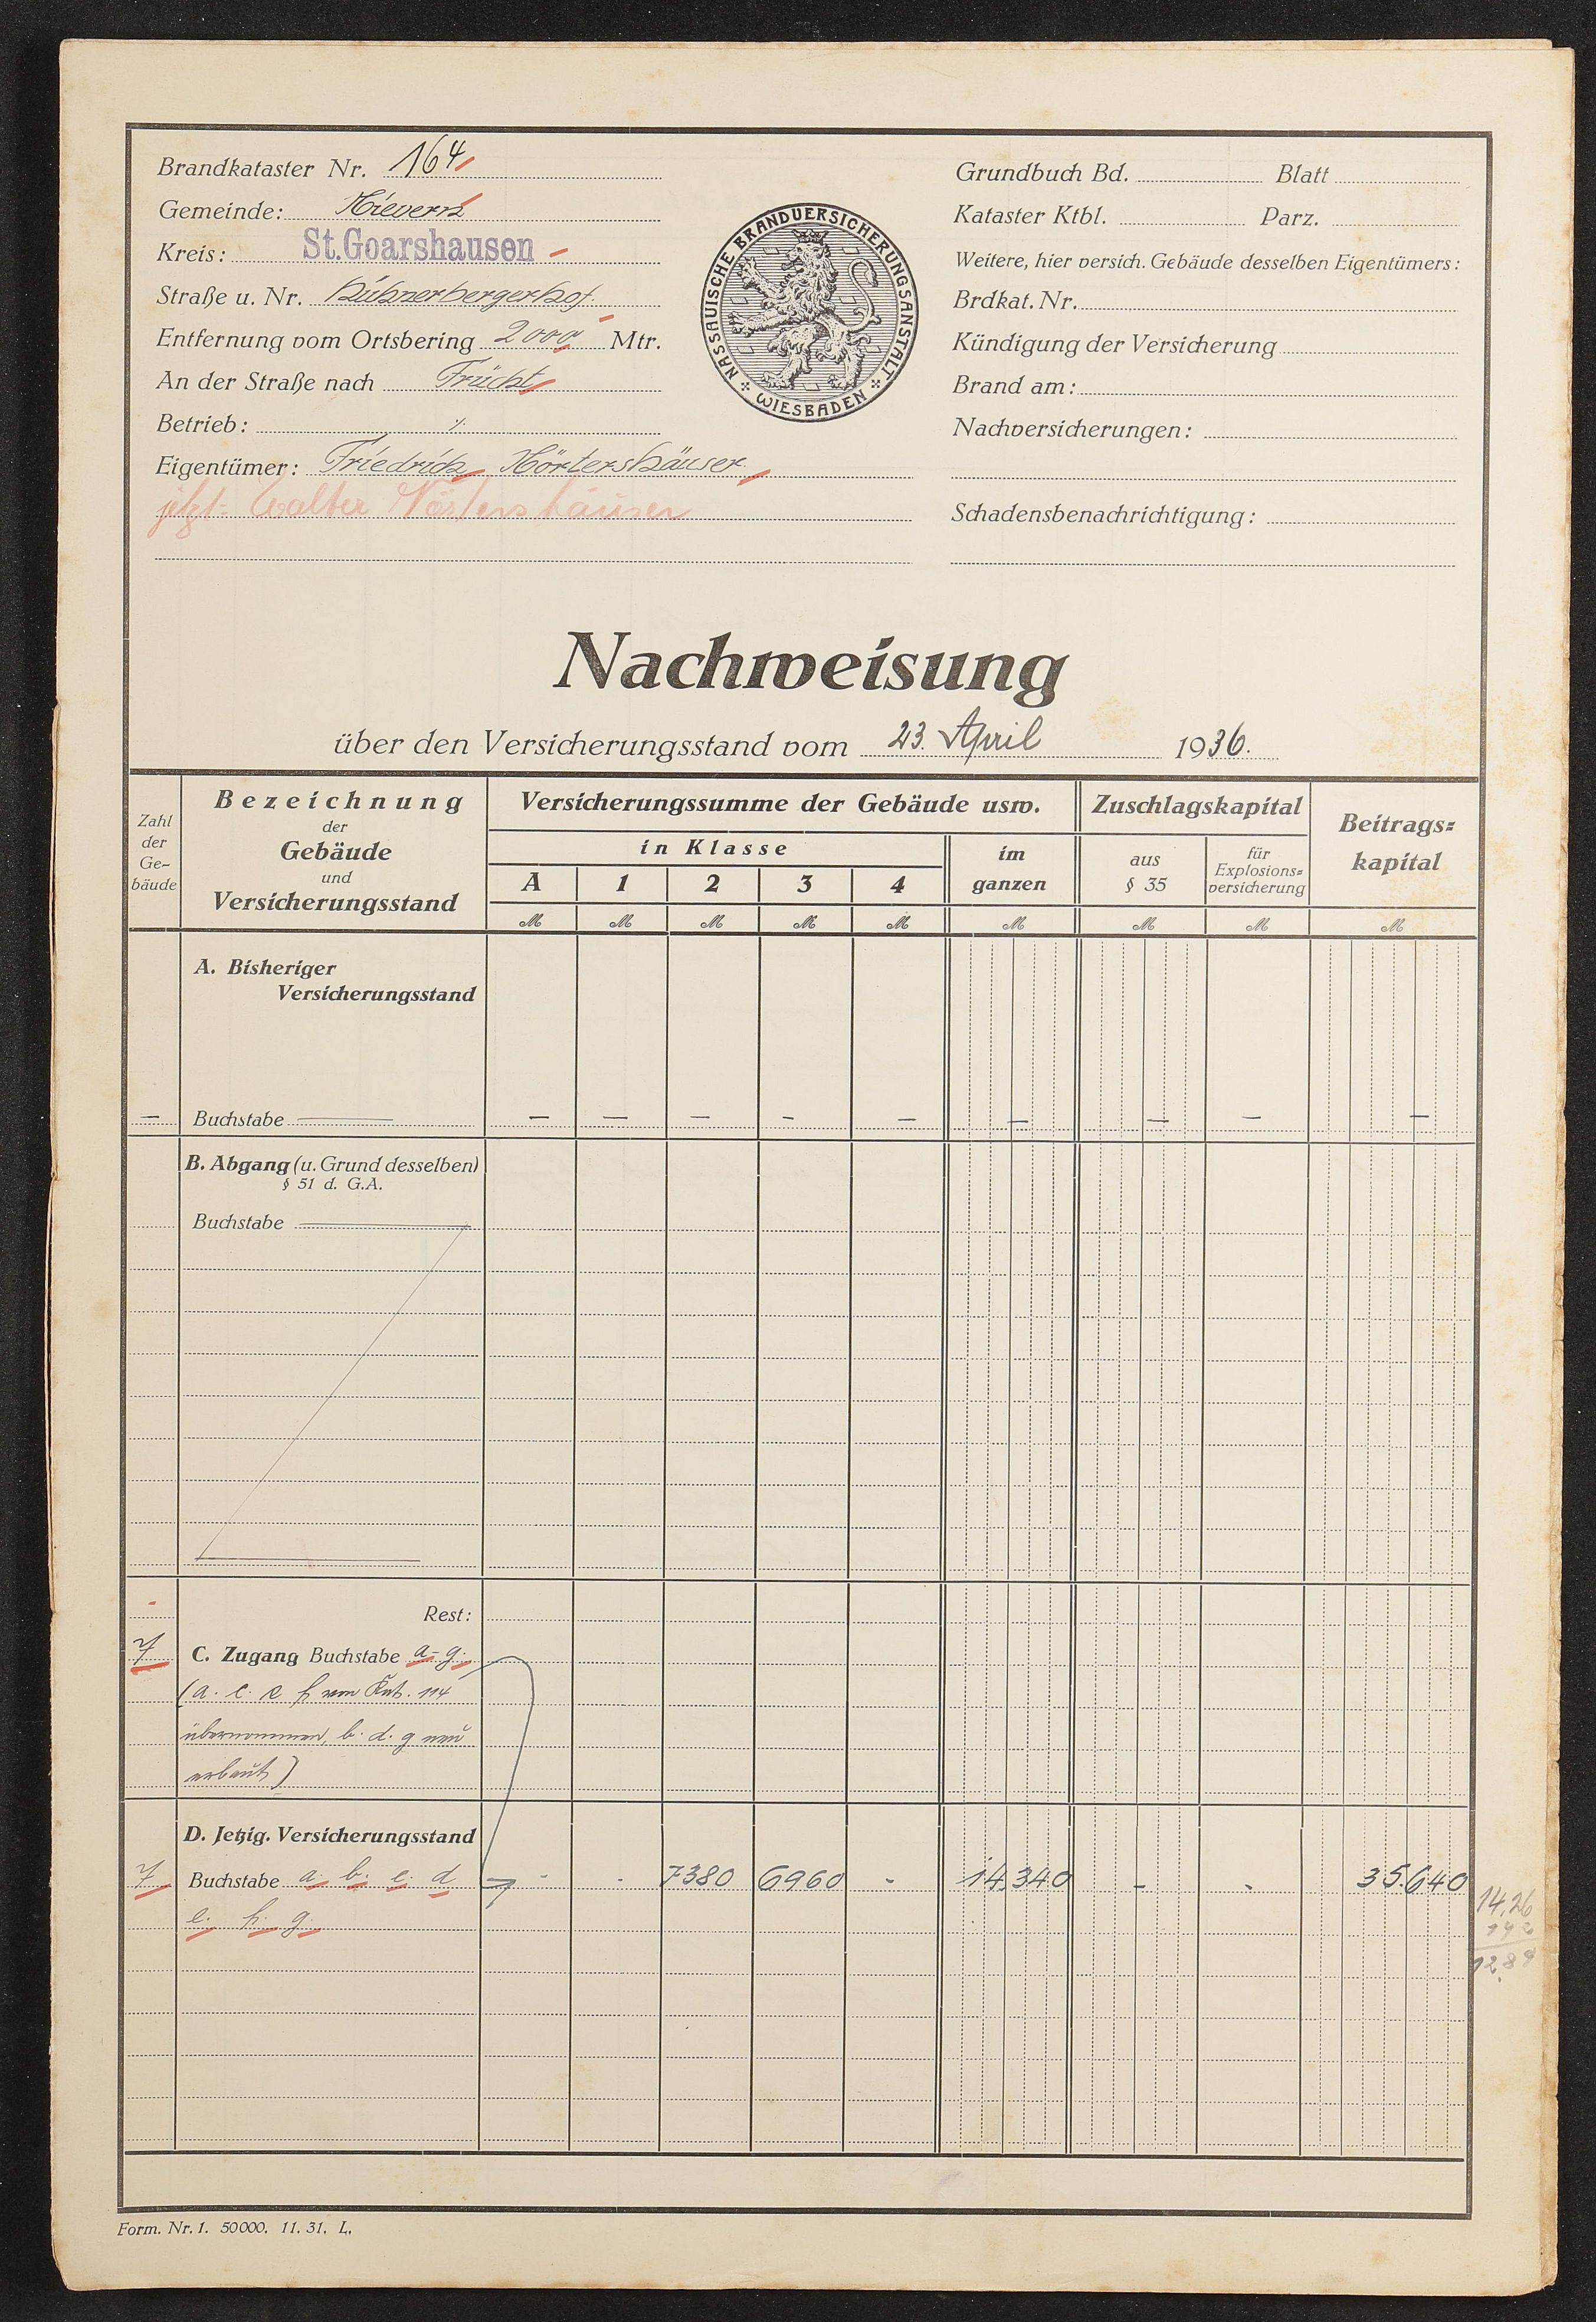 Brandkataster Nr. 164
Gemeinde: Nievern
Kreis: St. Goarshausen
Straße u. Nr. Hühnerbergerhof.
Entfernung vom Ortsbering 2000 Mtr.
An der Straße nach Frücht
Betrieb: ./.
Eigentümer: Friedrich Nörtershäuser
jetzt: Walter Nörtershäuser
NASSAUISCHE BRANDVERSICHERUNGSANSTALT
WIESBADEN
Grundbuch Bd. Blatt
Kataster Ktbl. Parz.
Weitere, hier versich. Gebäude desselben Eigentümers:
Brdkat. Nr.
Kündigung der Versicherung
Brand am:
Nachversicherungen:
Schadensbenachrichtigung:
Nachweisung
über den Versicherungsstand vom 23. April 1936.
Zahl der Ge-bäude
Bezeichnung der Gebäude und Versicherungsstand
Versicherungssumme der Gebäude usw.
in Klasse
A 1 2 3 4
im ganzen
Zuschlagskapital
aus § 35
für Explosions=versicherung
Beitrags=kapital
M M M M M M M M M
A. Bisheriger
Versicherungsstand
— Buchstabe — — — — — — — — — —
B. Abgang (u. Grund desselben)
§ 51 d. G.A.
Buchstabe
- Rest:
7 C. Zugang Buchstabe a-g.
(a. c. e. f. von Kat. 114
übernommen, b. d. g neu
erbaut)
D. Jetzig. Versicherungsstand
7 Buchstabe a. b. c. d - - 7380 6960 - 14.340 - - 35.640
e. f. g.
14,26
142
12,84
Form. Nr. 1. 50000. 11. 31. L.